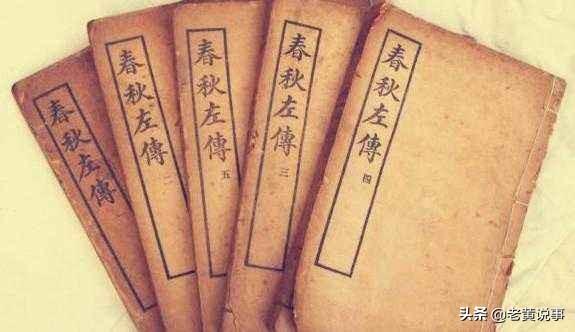 春秋左傳
春秋左傳 二
春秋左傳 五
春秋左傳 三
春秋左傳 四
头条 @老黄说事